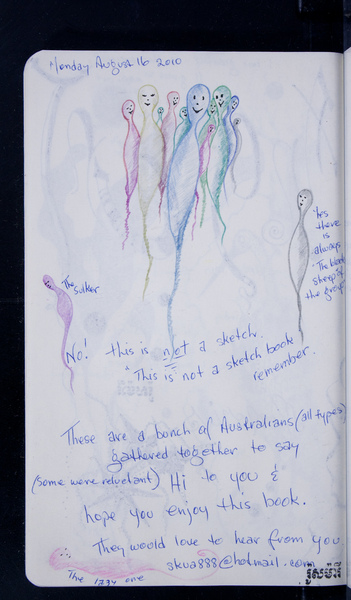 Monday August 16 2010
Yes
there
is
always
The black
sheep of
the group
The
sulker
No! this is not a sketch.
"This is not a sketch book
remember.
These are a bunch of Australians (all types)
gathered together to say
(some were reluctant) Hi to you &
hope you enjoy this book.
They would love to hear from you
skua888@hotmail.com
The lazy one